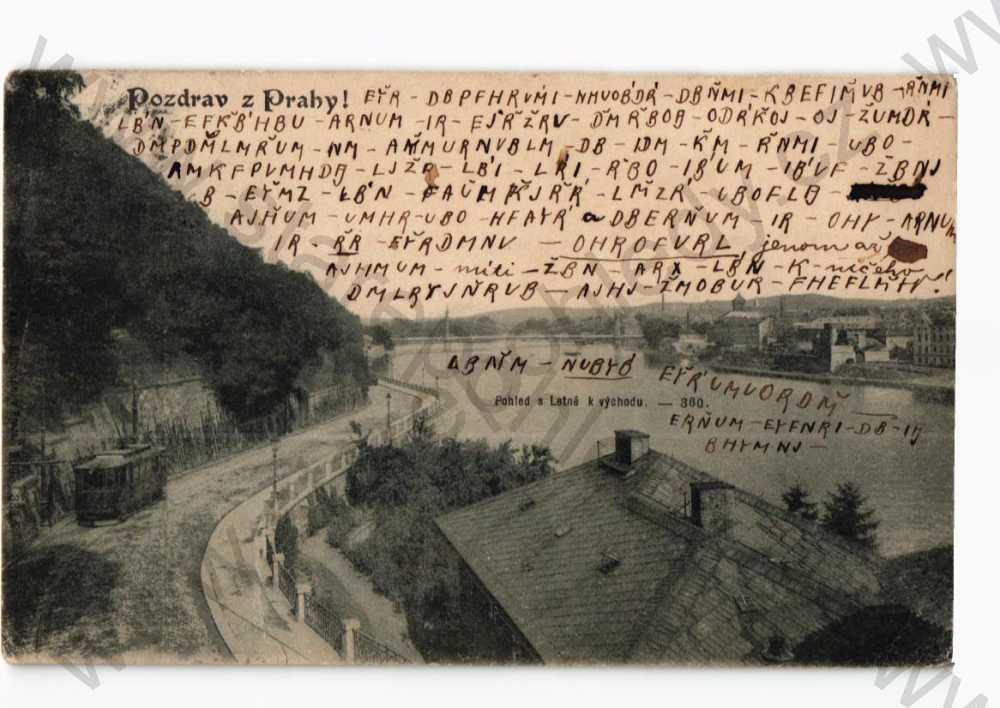 Pozdrav z Prahy! EŤR - DBPFHRVḾI - NMUOB'DŘ - DBŇMI - KBEFIM̌VB - ŘŇMI
LB'N - EFKB̌'HBU - ARNUM - IR - EJŘŽRV - ĎMŘBOB - ODŘKOJ - OJ - ŽUMDŘ -
DMPDM̌LMŘUM - NM - AM̌MURNVBLM - DB - IDM - ǨM - ŘŇMI - UBO -
AMKFPVMHDB - LJŽB - LB'I - LRI - ŘBO - IB'UM - IB'VF - ŽBNJ
B - EŤMZ - LB'N - FAUM - LM̌ZR - UBOFLB -
AJŇUM - UMHR - UBO - HFAYŘ a DBERŇUM IR - OHY - ARNUM
IR - ŘB - EŤRDMNV — OHROFVRL jenom až
AJHMUM - míti - ŽBN ARX - LB'N - K - ničeho
DMLRYJŇRUB — AJHJ - ŽMOBUR - FHEFLM̌V!
ABŇM - NUBYO EŤR'UMUORDM̌ —
Pohled s Letné k východu. — 360.
ERŇUM - EYFNRI - DB - IJ
BHYMNJ —